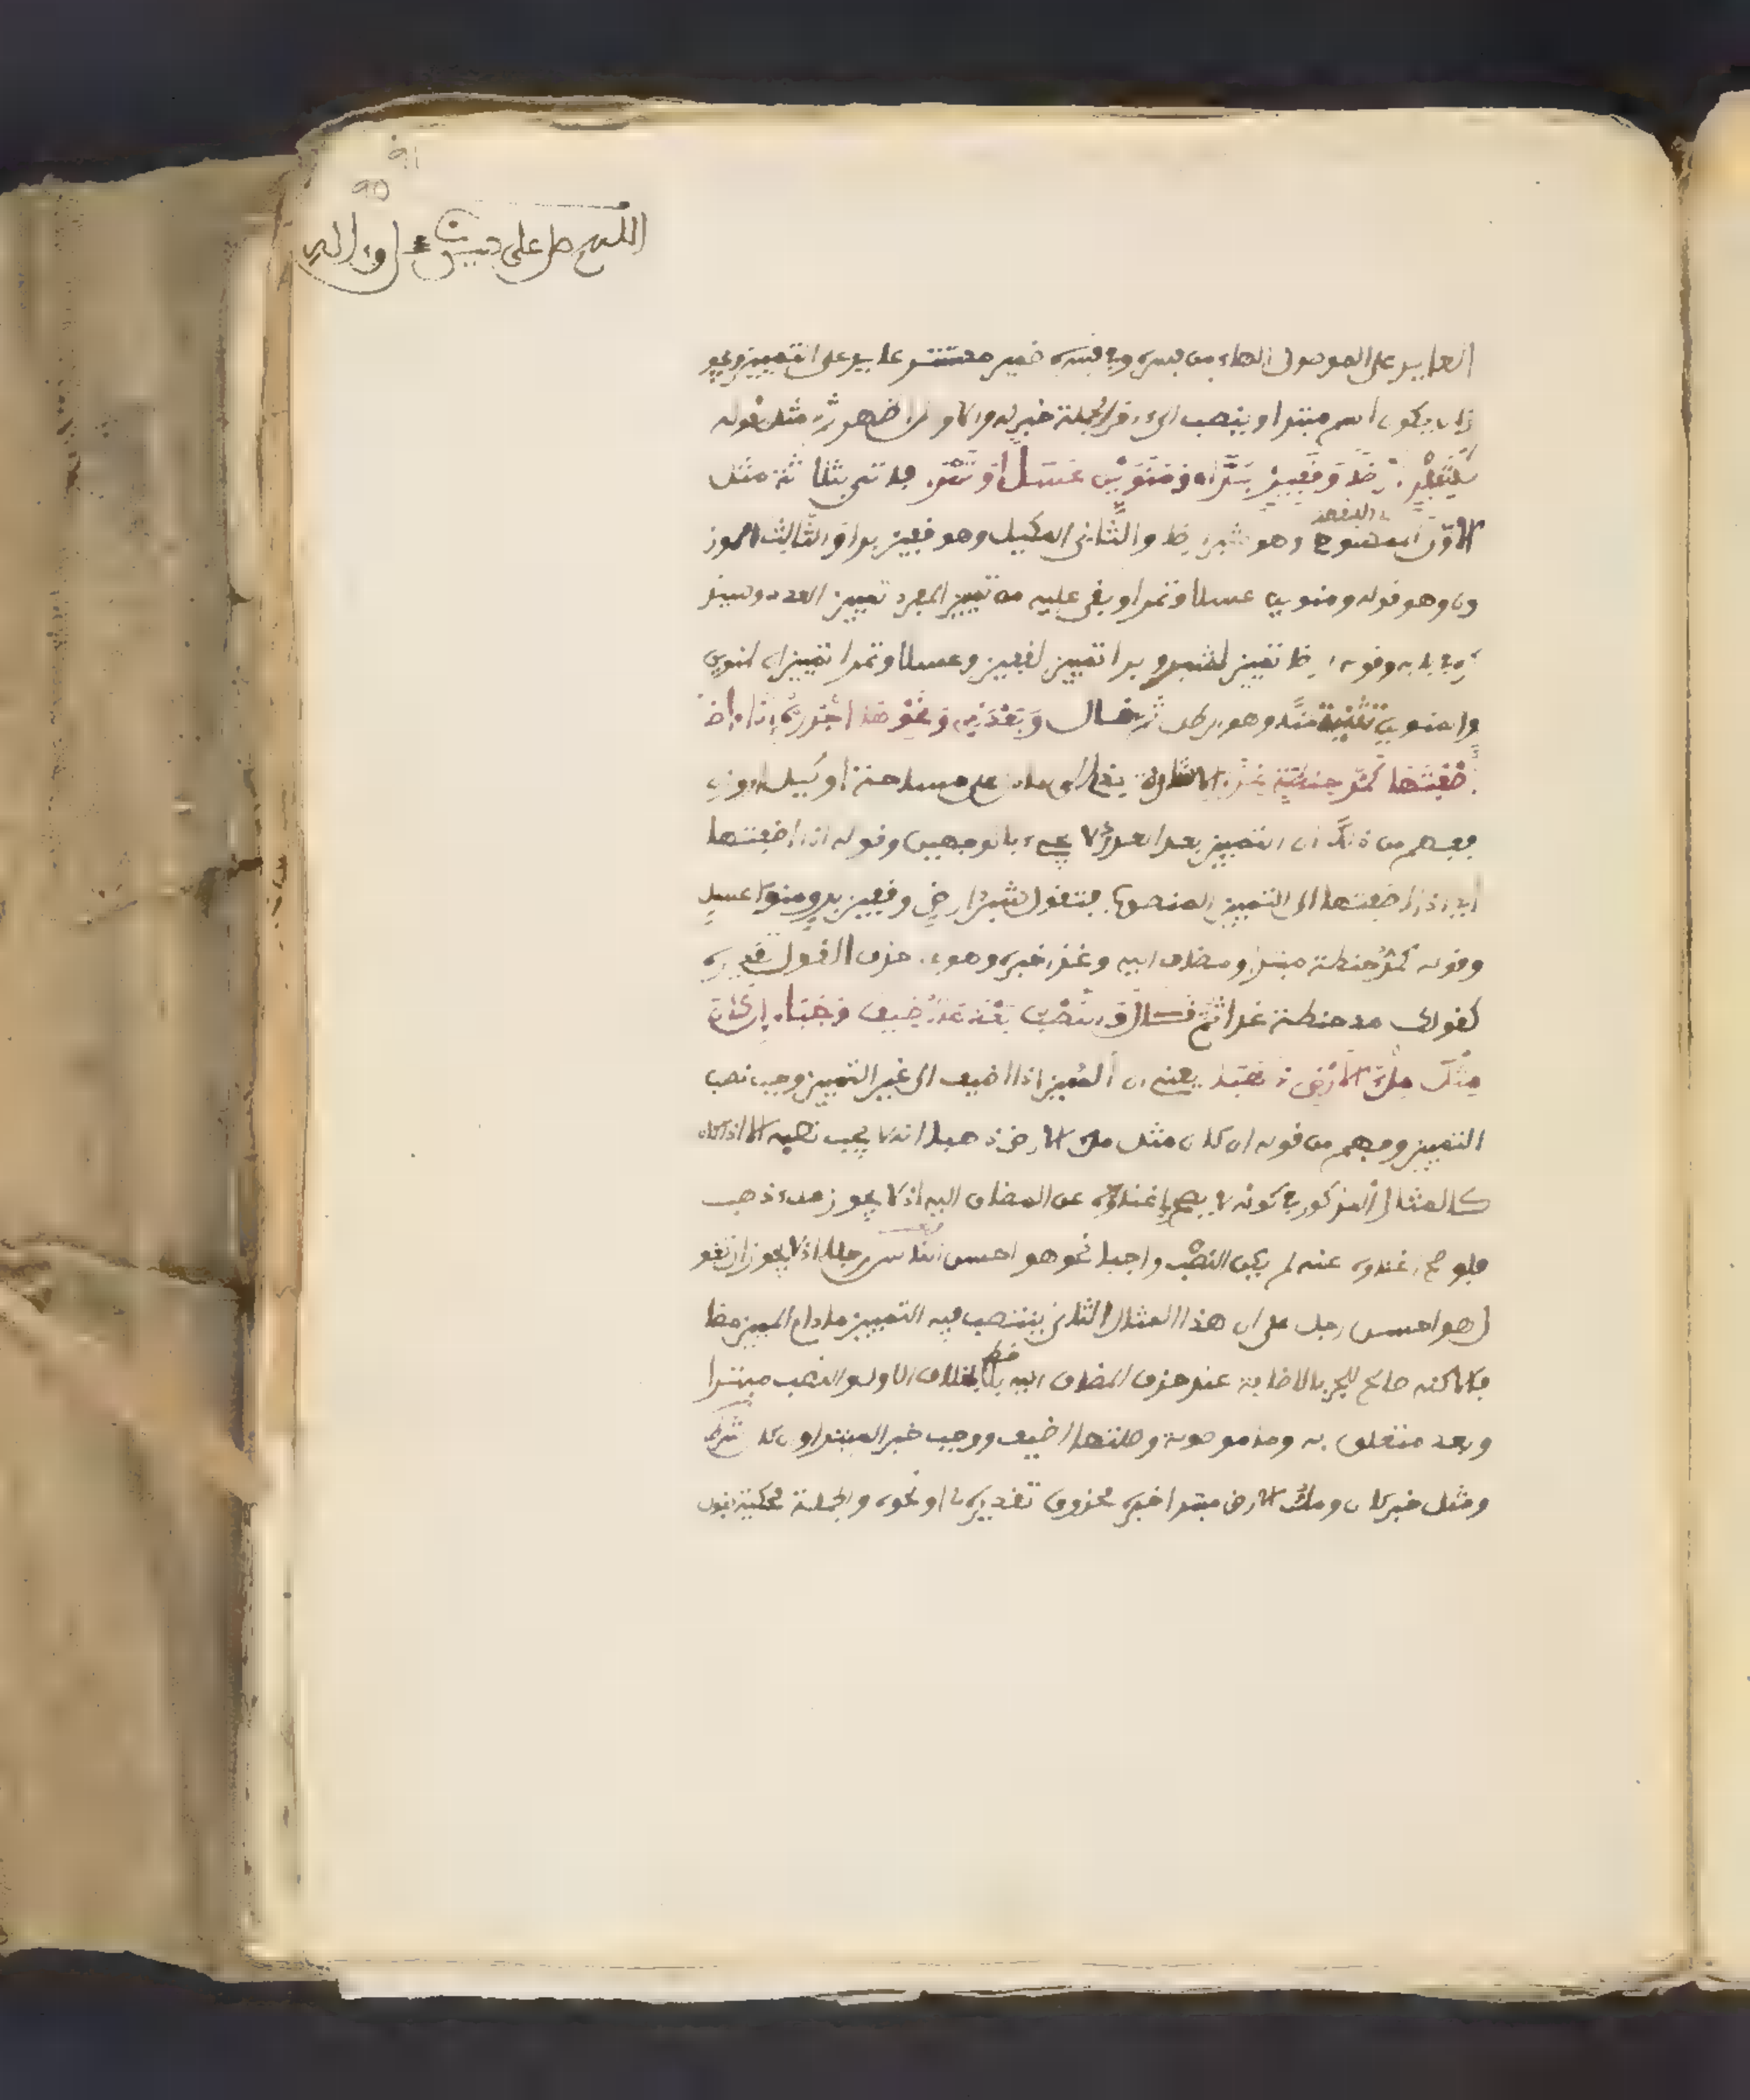 اللهم صل على حبيبنا
العايد على الموصول الهاء من فسره وفي فسره ضمير مستتر عايد على التمييز ويجو
ز ان يكون اسم مبتدا وينصب الى اخر الجملة خبر له والاول اظهر ثم مثل بقوله
كَشِبْرٍ ارْضًا وَقَفِيزٍ بُرًّا وَمَنَوَيْنِ عَسَلًا وَتَمْرَا فاتى بثلاثة مثل
الاول الممسوح وهو شبر ارضا والثاني المكيل وهو قفيز برا والثالث الموز
ون وهو قوله ومنوين عسلا وتمرا وبقي عليه من تمييز المفرد تمييز العدد وسيذ
كر في بابه وقوله ارضا تمييز لشبر وبرا تمييز لقفيز وعسلا وتمرا تمييزان لمنوين
والمنوين تثنية منا وهو رطل ثم قال وَبَعْدَ ذِي وَنَحْوِهَا اجْرُرْهُ إِذَا أَضَـ
ـفْتَهَا كَمُدِّ حِنْطَةٍ غِذَا الاشارة بذي الى ما دل على مساحة أو كيل او وزن
ففهم من ذلك ان التمييز بعد العدد لا يجيء بالوجهين وقوله اذا اضفتها
أي اذا اضفتها الى التمييز المنصوب فتقول شبر ارض وقفيز بر ومنوا عسل
وقوله كمد حنطة مبتدا ومضاف اليه وغذا خبره وهو على حذف القول تقديره
كقولك مد حنطة غذا ثم قال وَالنَّصْبُ بَعْدَ مَا أُضِيفَ وَجَبَا إِنْ كَانَ
مِثْلَ مِلْءُ الْأَرْضِ ذَهَبَا يعني ان المميز اذا اضيف الى غير التمييز وجب نصب
التمييز وفهم من قوله ان كان مثل ملء الارض ذهبا انه لا يجب نصبه الا اذا كان
كالمثال المذكور في كونه لا يصح إغناؤه عن المضاف اليه اذ لا يجوز ملء ذهب
فلو صح اغناؤه عنه لم يكن النصب واجبا نحو هو احسن الناس رجلا اذ يجوز ان تقو
ل هو احسن رجل على ان هذا المثال الثاني ينتصب فيه التمييز ما دام المميز مضا
فا لاكنه صالح للجر بالاضافة عند حذف المضاف اليه بخلاف الاول والنصب مبتدا
وبعد متعلق به وما موصولة وصلتها اضيف ووجب خبر المبتدا وان كان شرط
ومثل خبر كان وملء الارض مبتدا خبره محذوف تقديره لي او نحوه والجملة محكية بقول